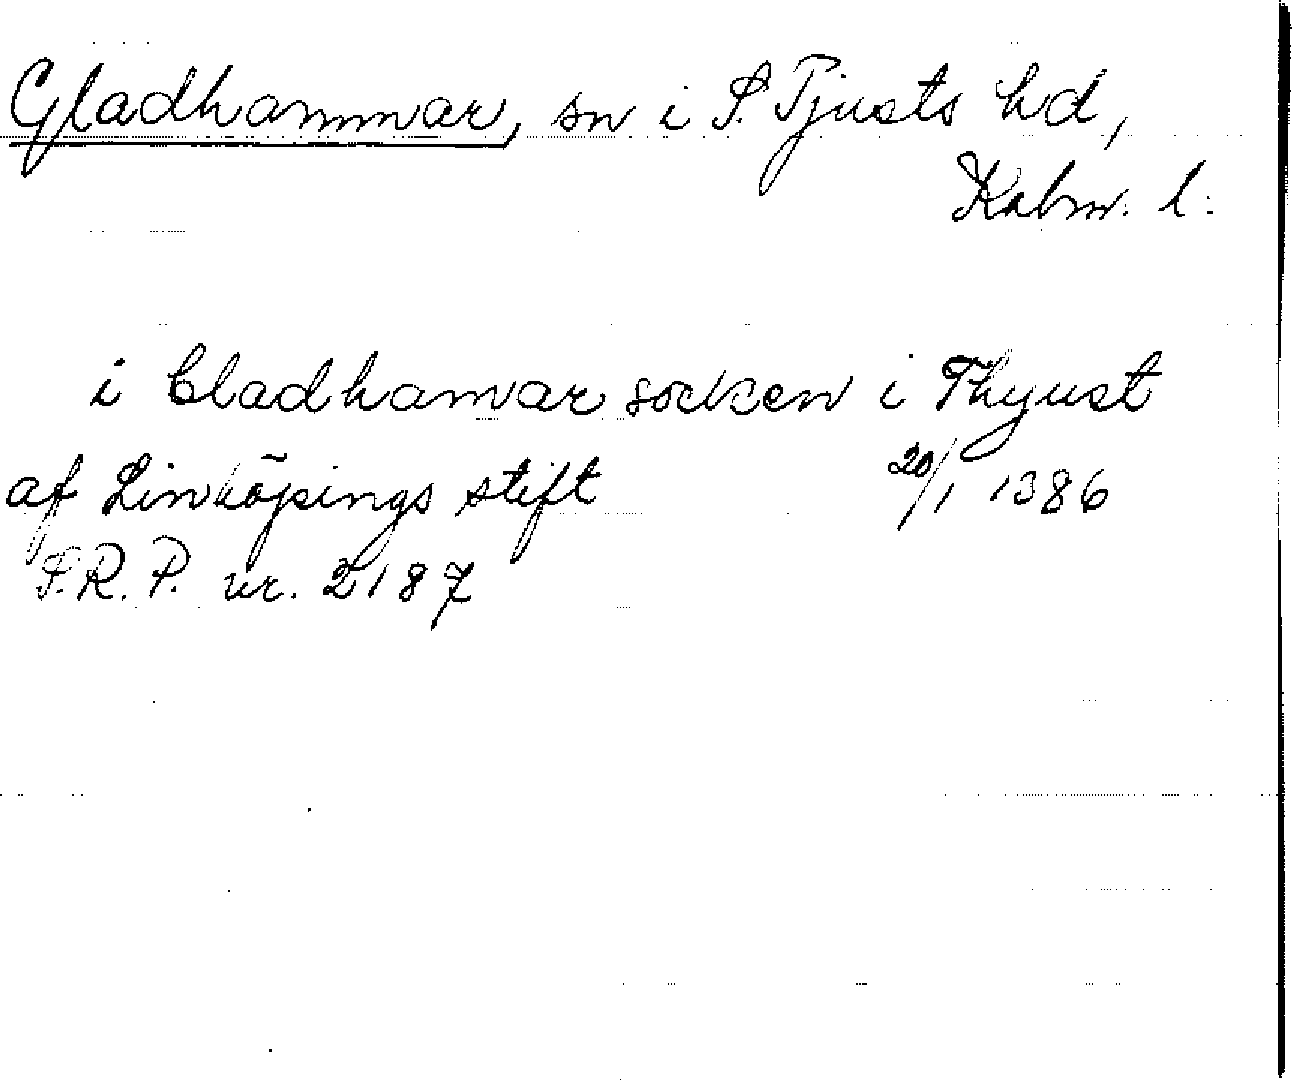 Gladhammar, sn i S. Tjusts hd,
Kalm. l:
i Cladhamar socken i Thyust
af Linköpings stift 20/1 1386
S.R.P. nr. 2187